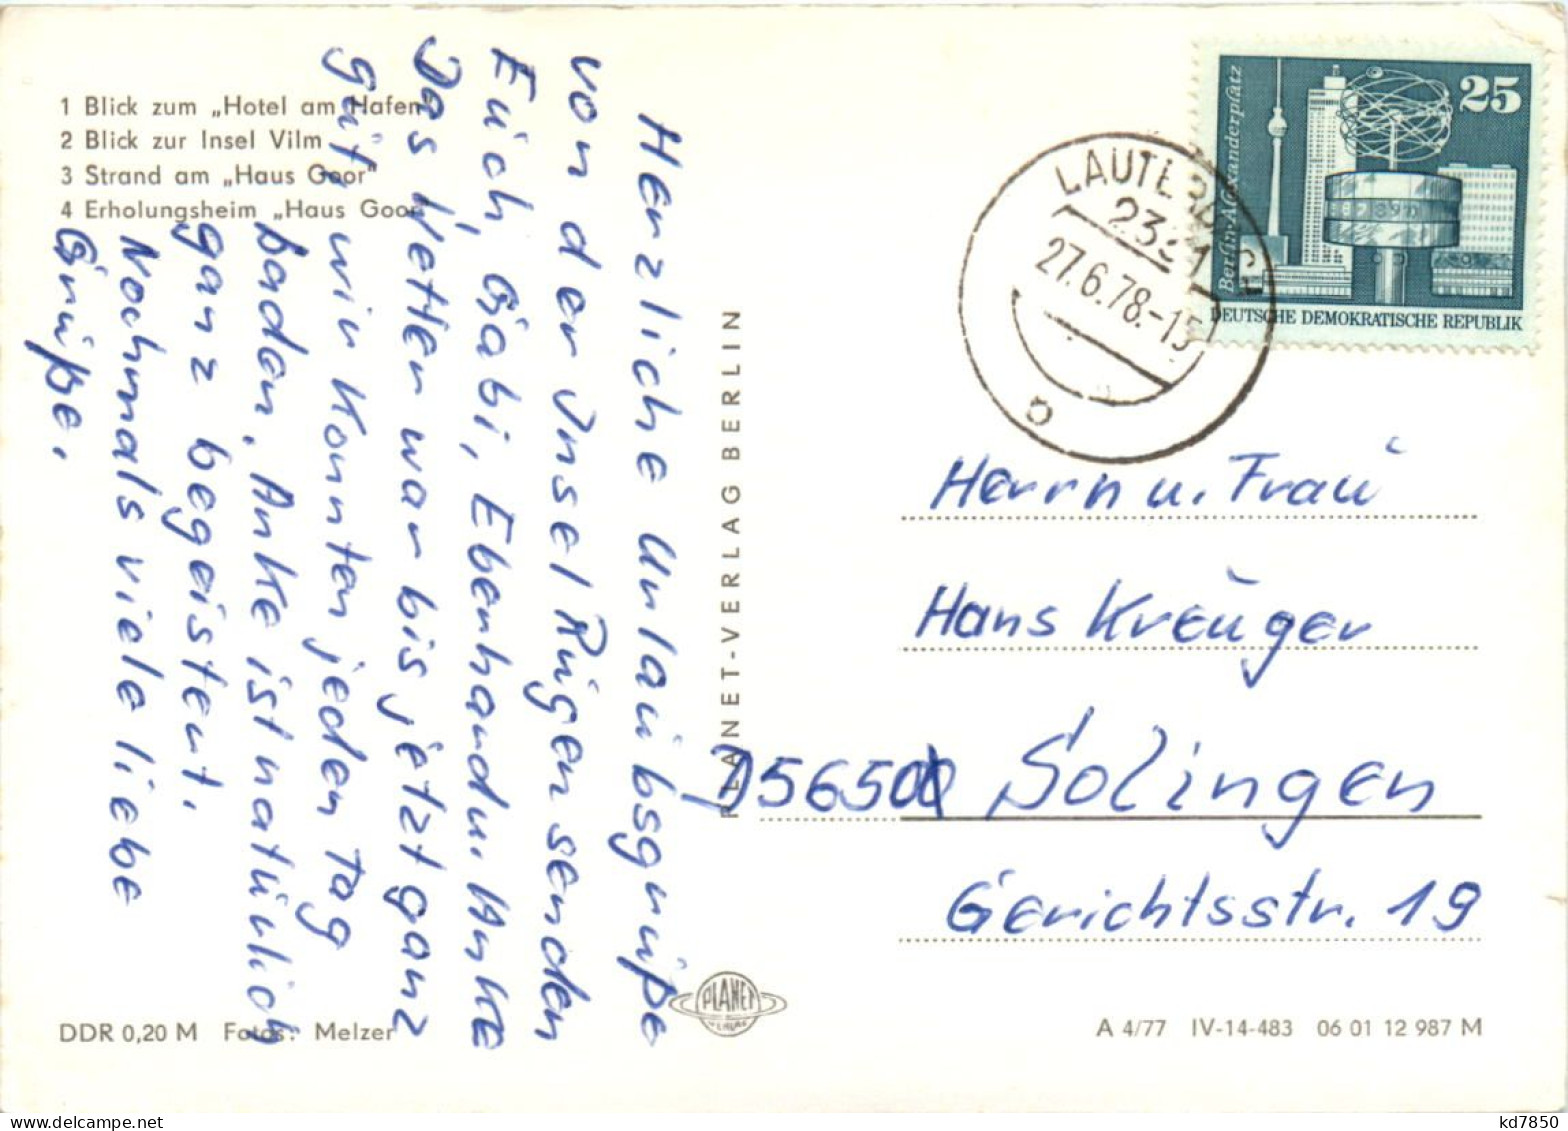 1 Blick zum „Hotel am Hafen“
2 Blick zur Insel Vilm
3 Strand am „Haus Goor“
4 Erholungsheim „Haus Goor“
Herzliche Urlaubsgrüße
von der Insel Rügen senden
Euch, Gabi, Ebenhard u. Anke
Das Wetter war bis jetzt ganz
gut, wir konnten jeden Tag
baden, Anke ist natürlich
ganz begeistert.
Nochmals viele liebe
Grüße.
PLANET-VERLAG BERLIN
Berlin, Alexanderplatz
25
DEUTSCHE DEMOKRATISCHE REPUBLIK
LAUTERBACH
2331
27.6.78.-15
a
Herrn u. Frau
Hans Kreuger
D5650 Solingen
Gerichtsstr. 19
PLANET
VERLAG
DDR 0,20 M Fotos: Melzer
A 4/77 IV-14-483 06 01 12 987 M
kd7850